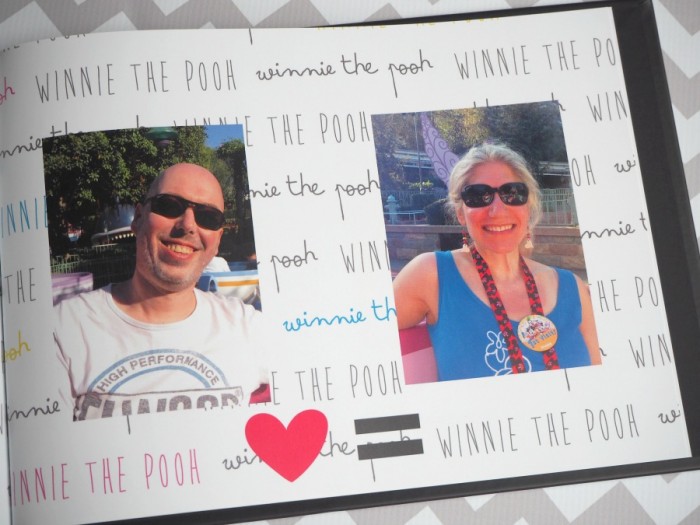 WINNIE THE POOH winnie the pooh WINNIE THE PO
winnie the THE POOH WIN
INNIE nie the pooh POOH wi
THE pooh WINNI nnie the
winnie th THE PO
winnie THE POOH WIN
INNIE THE POOH wi the pooh WINNIE THE POOH w
HIGH PERFORMANCE